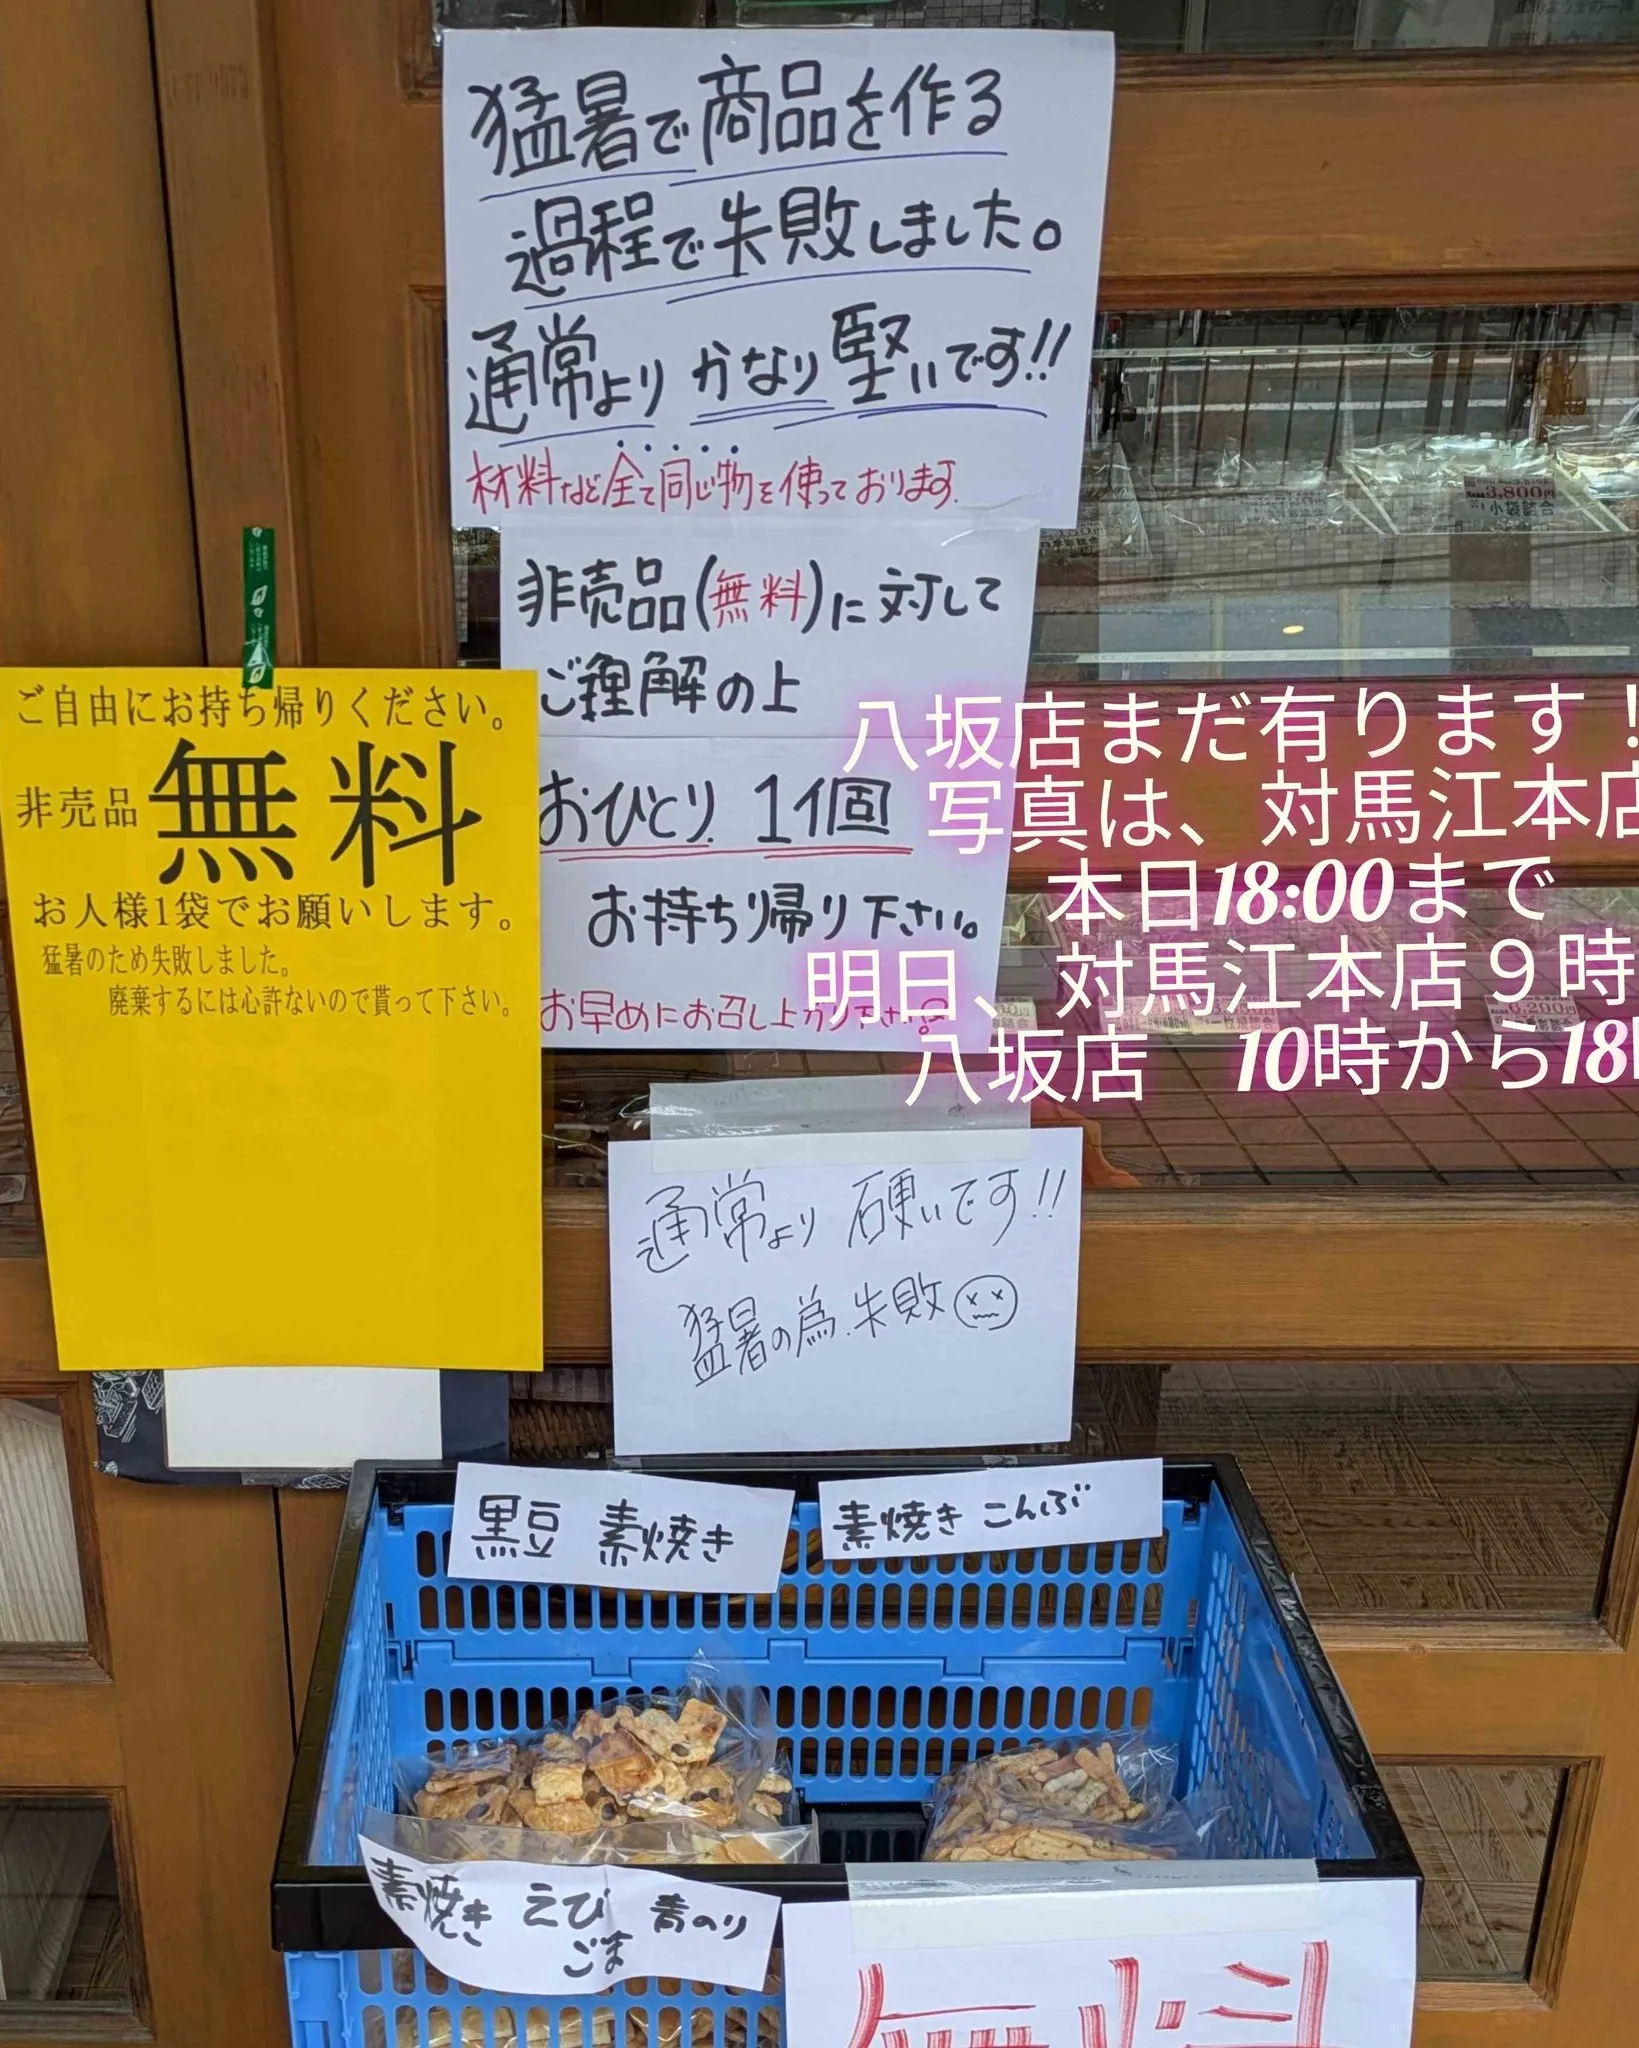 猛暑で商品を作る
過程で失敗しました。
通常より かなり堅いです!!
材料など全て同じ物を使っております.
非売品(無料)に対して
ご理解の上
おひとり 1個
お持ち帰り下さい。
お早めにお召し上がり下さい。
ご自由にお持ち帰りください。
非売品 無料
お人様1袋でお願いします。
猛暑のため失敗しました。
廃棄するには心許ないので貰って下さい。
八坂店まだ有ります!
写真は、対馬江本店
本日18:00まで
明日、対馬江本店9時
八坂店 10時から18時
3,800円
小袋詰合
6,290円
通常より 硬いです!!
猛暑の為.失敗
黒豆 素焼き
素焼き こんぶ
素焼き えび 青のり
ごま
無料